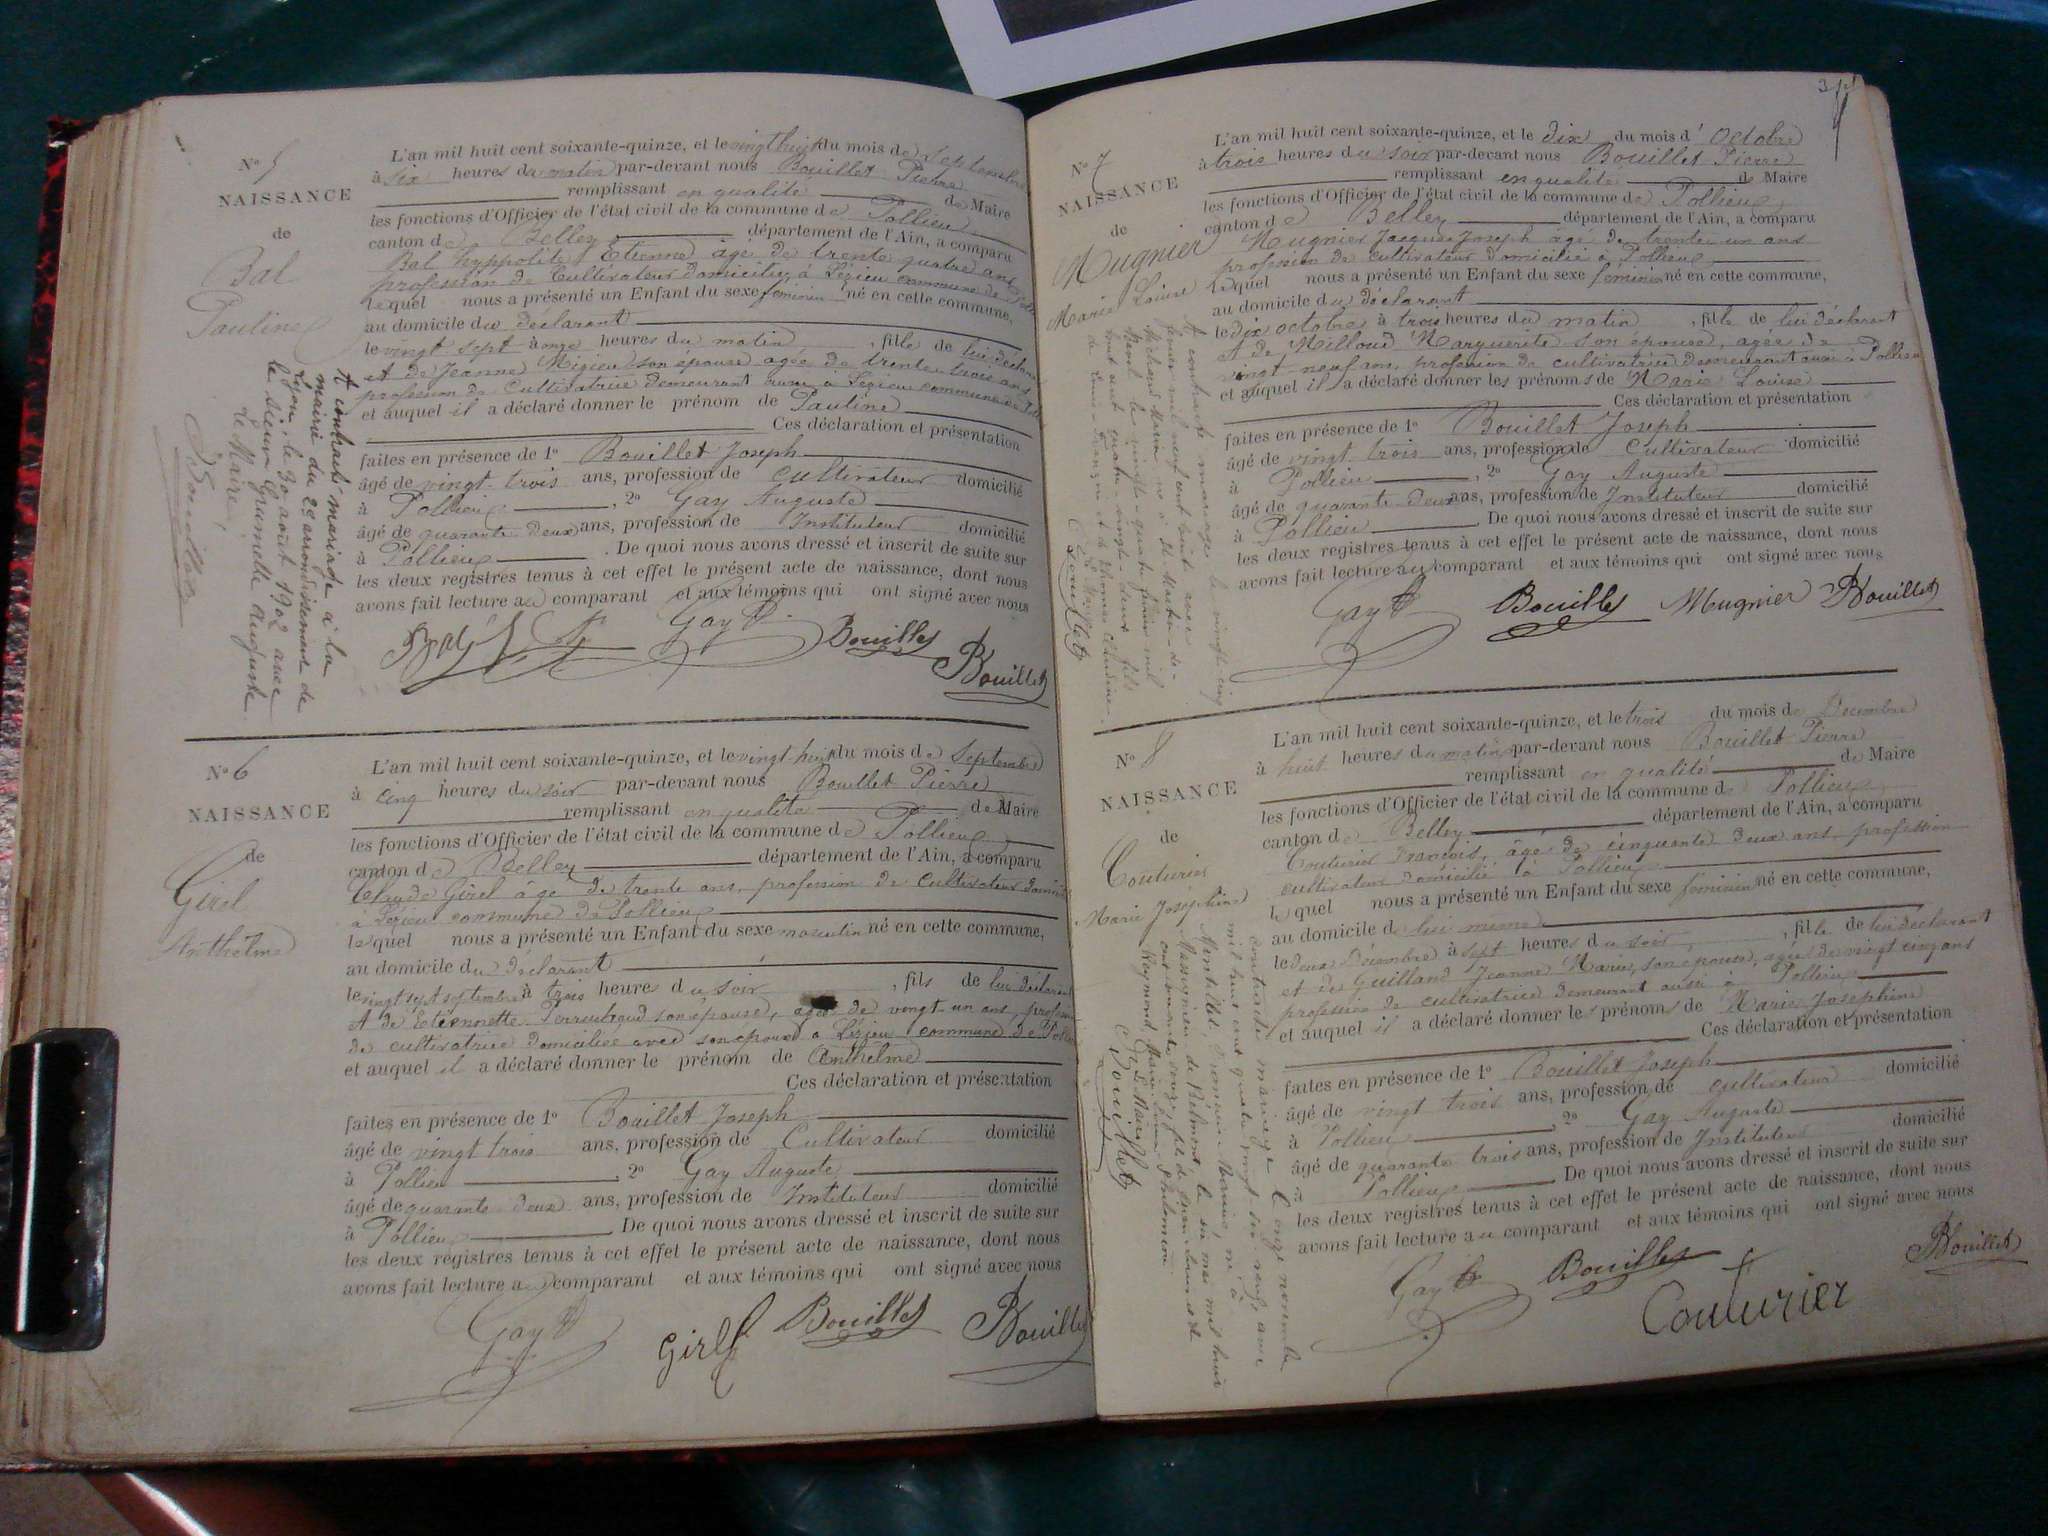 N° 5
NAISSANCE
de
Bal
Pauline
L'an mil huit cent soixante-quinze, et le vingt huit du mois de Septembre
à six heures du matin par-devant nous Bouillet Pierre
remplissant en qualité de Maire
les fonctions d'Officier de l'état civil de la commune de Pollieu
canton de Belley département de l'Ain, a comparu
Bal hyppolite Etienne âgé de trente quatre ans
profession de Cultivateur domicilié à Lézieu commune de
lequel nous a présenté un Enfant du sexe féminin né en cette commune,
au domicile du déclarant
le vingt sept à onze heures du matin, fille de lui déclarant
et de Jeanne Migieu son épouse agée de trente trois ans
profession de Cultivatrice demeurant aussi à Lézieu commune de
et auquel il a déclaré donner le prénom de Pauline
Ces déclaration et présentation
faites en présence de 1° Bouillet Joseph
âgé de vingt-trois ans, profession de cultivateur domicilié
à Pollieu, 2° Gay Auguste
âgé de quarante deux ans, profession de Instituteur domicilié
à Pollieu. De quoi nous avons dressé et inscrit de suite sur
les deux registres tenus à cet effet le présent acte de naissance, dont nous
avons fait lecture au comparant et aux témoins qui ont signé avec nous
Gay Bouillet
Bouillet
A contracté mariage à la
mairie du 2e arrondissement de
Lyon, le 30 août 1902 avec
le sieur Grumelle Auguste
Le Maire,
N° 6
NAISSANCE
de
Girel
Anthelme
L'an mil huit cent soixante-quinze, et le vingt huit du mois de Septembre
à cinq heures du soir par-devant nous Bouillet Pierre
remplissant en qualité de Maire
les fonctions d'Officier de l'état civil de la commune de Pollieu
canton de Belley département de l'Ain, a comparu
Claude Girel âgé de trente ans, profession de Cultivateur domicilié
à Lézieu commune de Pollieu
lequel nous a présenté un Enfant du sexe masculin né en cette commune,
au domicile du déclarant
le vingt sept septembre à trois heures du soir, fils de lui déclarant
et de Etiennette son épouse, agée de vingt un ans, profession
de cultivatrice domiciliée avec son époux à Lézieu commune de
et auquel il a déclaré donner le prénom de Anthelme
Ces déclaration et présentation
faites en présence de 1° Bouillet Joseph
âgé de vingt trois ans, profession de Cultivateur domicilié
à Pollieu, 2° Gay Auguste
âgé de quarante deux ans, profession de Instituteur domicilié
à Pollieu. De quoi nous avons dressé et inscrit de suite sur
les deux registres tenus à cet effet le présent acte de naissance, dont nous
avons fait lecture au comparant et aux témoins qui ont signé avec nous
Gay Girel Bouillet Bouillet
N° 7
NAISSANCE
de
Mugnier
Marie Louise
L'an mil huit cent soixante-quinze, et le dix du mois d'Octobre
à trois heures du soir par-devant nous Bouillet Pierre
remplissant en qualité de Maire
les fonctions d'Officier de l'état civil de la commune de Pollieu
canton de Belley département de l'Ain, a comparu
Mugnier Jacques Joseph âgé de trente un ans
profession de cultivateur domicilié à Pollieu
lequel nous a présenté un Enfant du sexe féminin né en cette commune,
au domicile du déclarant
le dix octobre à trois heures du matin, fille de lui déclarant
et de Milloud Marguerite son épouse, agée de
vingt neuf ans, profession de cultivatrice demeurant aussi à Pollieu
et auquel il a déclaré donner les prénoms de Marie Louise
Ces déclaration et présentation
faites en présence de 1° Bouillet Joseph
âgé de vingt trois ans, profession de Cultivateur domicilié
à Pollieu, 2° Gay Auguste
âgé de quarante deux ans, profession de Instituteur domicilié
à Pollieu. De quoi nous avons dressé et inscrit de suite sur
les deux registres tenus à cet effet le présent acte de naissance, dont nous
avons fait lecture au comparant et aux témoins qui ont signé avec nous
Gay Bouillet Mugnier Bouillet
A contracté mariage le vingt-cinq
N° 8
NAISSANCE
de
Couturier
Marie Joséphine
L'an mil huit cent soixante-quinze, et le trois du mois de Décembre
à huit heures du matin par-devant nous Bouillet Pierre
remplissant en qualité de Maire
les fonctions d'Officier de l'état civil de la commune de Pollieu
canton de Belley département de l'Ain, a comparu
Couturier François, âgé de cinquante deux ans, profession
cultivateur domicilié à Pollieu
lequel nous a présenté un Enfant du sexe féminin né en cette commune,
au domicile de lui même
le deux Décembre à sept heures du soir, fille de lui déclarant
et de Guilland Jeanne Marie, son épouse, agée de vingt cinq ans
profession de cultivatrice demeurant aussi à Pollieu
et auquel il a déclaré donner les prénoms de Marie Joséphine
Ces déclaration et présentation
faites en présence de 1° Bouillet Joseph
âgé de vingt trois ans, profession de cultivateur domicilié
à Pollieu, 2° Gay Auguste
âgé de quarante trois ans, profession de Instituteur domicilié
à Pollieu. De quoi nous avons dressé et inscrit de suite sur
les deux registres tenus à cet effet le présent acte de naissance, dont nous
avons fait lecture au comparant et aux témoins qui ont signé avec nous
Gay Bouillet Bouillet
Couturier